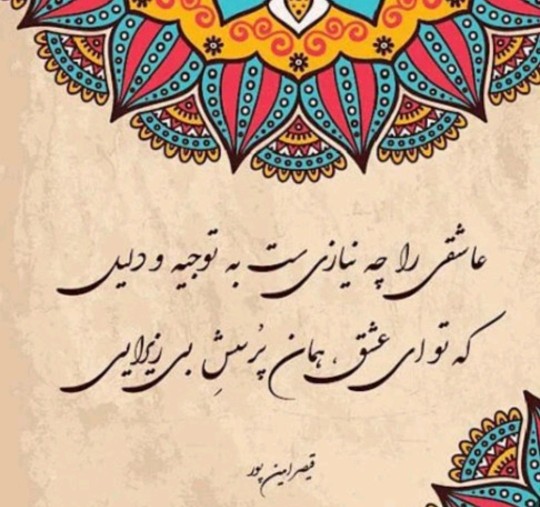 عاشقی را چه نیازی ست به توجیه و دلیل
که تو ای عشق، همان پُرسشِ بی زیرایی
قیصر امین پور